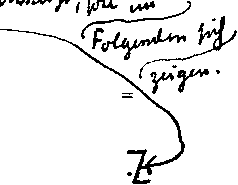 soll im
Folgenden sich
zeigen.
=
.Z.